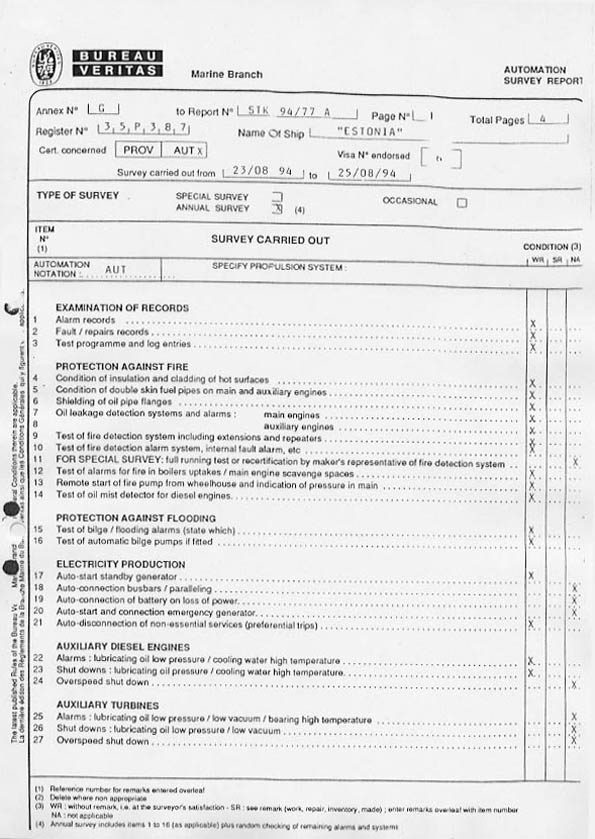 BUREAU
VERITAS
Marine Branch
AUTOMATION
SURVEY REPORT
Annex N° G to Report N° STK 94/77 A Page N° 1 Total Pages 4
Register N° 3,5,P,3,8,7 Name Of Ship "ESTONIA"
Cert. concerned PROV AUT X Visa N° endorsed
Survey carried out from 23/08 94 to 25/08/94
TYPE OF SURVEY SPECIAL SURVEY
ANNUAL SURVEY X (4) OCCASIONAL
ITEM
N°
(1)
SURVEY CARRIED OUT
CONDITION (3)
WR SR NA
AUTOMATION
NOTATION : AUT SPECIFY PROPULSION SYSTEM :
EXAMINATION OF RECORDS
1 Alarm records X
2 Fault / repairs records X
3 Test programme and log entries X
PROTECTION AGAINST FIRE
4 Condition of insulation and cladding of hot surfaces X
5 Condition of double skin fuel pipes on main and auxiliary engines X
6 Shielding of oil pipe flanges X
7 Oil leakage detection systems and alarms : main engines X
8 auxiliary engines X
9 Test of fire detection system including extensions and repeaters X
10 Test of fire detection alarm system, internal fault alarm, etc X
11 FOR SPECIAL SURVEY: full running test or recertification by maker's representative of fire detection system X
12 Test of alarms for fire in boilers uptakes / main engine scavenge spaces X
13 Remote start of fire pump from wheelhouse and indication of pressure in main X
14 Test of oil mist detector for diesel engines X
PROTECTION AGAINST FLOODING
15 Test of bilge / flooding alarms (state which) X
16 Test of automatic bilge pumps if fitted X
ELECTRICITY PRODUCTION
17 Auto-start standby generator X
18 Auto-connection busbars / paralleling X
19 Auto-connection of battery on loss of power X
20 Auto-start and connection emergency generator X
21 Auto-disconnection of non-essential services (preferential trips) X
AUXILIARY DIESEL ENGINES
22 Alarms : lubricating oil low pressure / cooling water high temperature X
23 Shut downs : lubricating oil pressure / cooling water high temperature X
24 Overspeed shut down X
AUXILIARY TURBINES
25 Alarms : lubricating oil low pressure / low vacuum / bearing high temperature X
26 Shut downs : lubricating oil low pressure / low vacuum X
27 Overspeed shut down X
(1) Reference number for remarks entered overleaf
(2) Delete where non appropriate
(3) WR : without remark, i.e. at the surveyor's satisfaction - SR : see remark (work, repair, inventory, made) ; enter remarks overleaf with item number
NA : not applicable
(4) Annual survey includes items 1 to 16 (as applicable) plus random checking of remaining alarms and systems
The latest published Rules of the Bureau Conditions therein are applicable.
La dernière édition des Règlements de la Marine du Conditions Générales qui y figurent